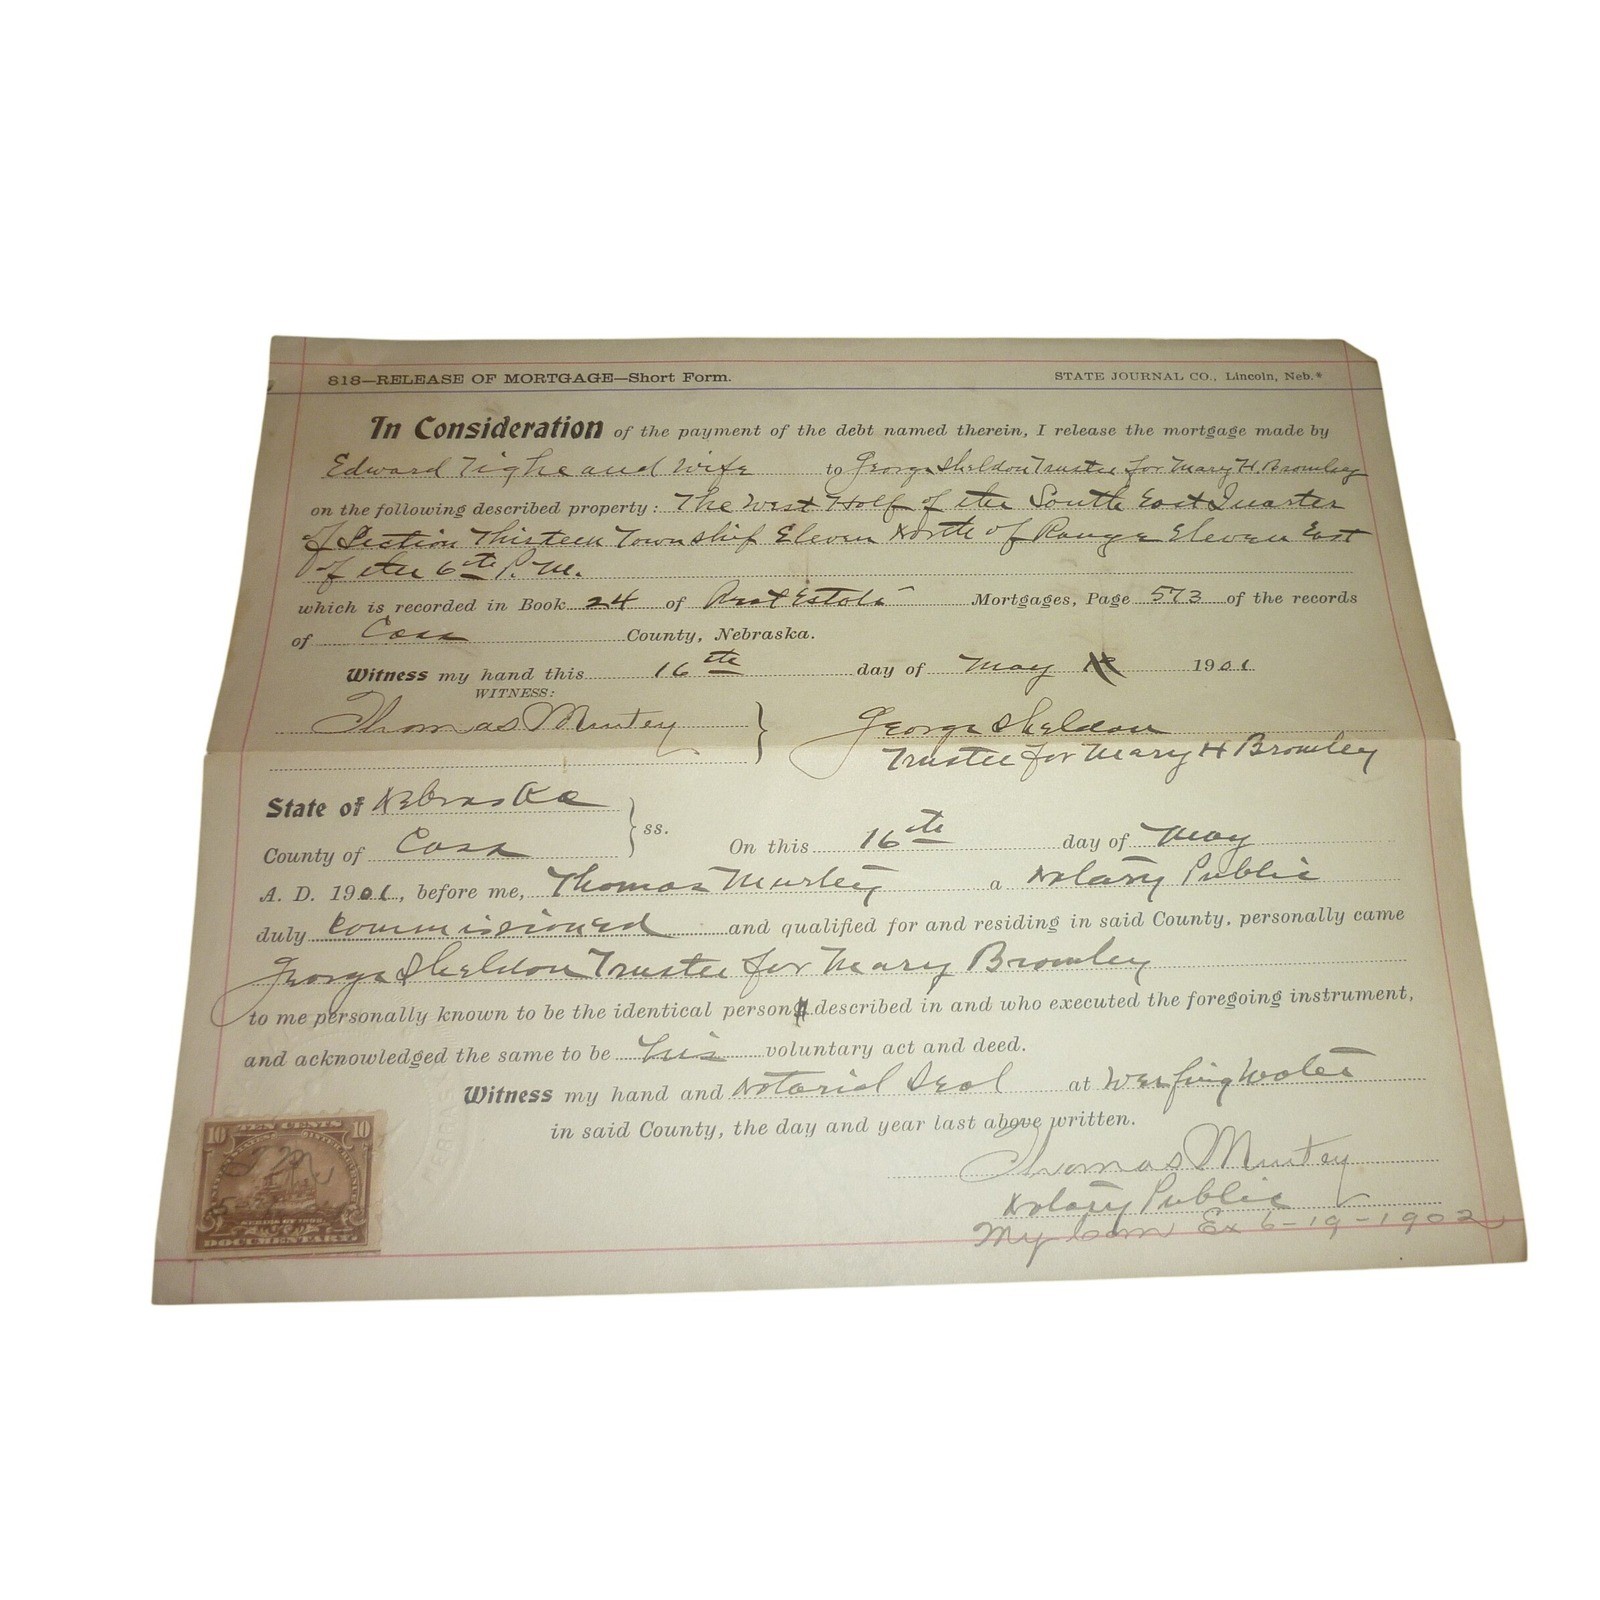 818—RELEASE OF MORTGAGE—Short Form. STATE JOURNAL CO., Lincoln, Neb.*
In Consideration of the payment of the debt named therein, I release the mortgage made by
Edward Tighe and Wife to George Sheldon Trustee for Mary H. Bromley
on the following described property: The West Half of the South East Quarter
of Section Thirteen Township Eleven North of Range Eleven East
of the 6th P. M.
which is recorded in Book 24 of Real Estate Mortgages, Page 573 of the records
of Cass County, Nebraska.
Witness my hand this 16th day of May 1901
WITNESS:
Thomas Murtey George Sheldon
Trustee for Mary H Bromley
State of Nebraska
County of Cass } ss. On this 16th day of May
A. D. 1901, before me, Thomas Murtey a Notary Public
duly commissioned and qualified for and residing in said County, personally came
George Sheldon Trustee for Mary Bromley
to me personally known to be the identical person described in and who executed the foregoing instrument,
and acknowledged the same to be his voluntary act and deed.
Witness my hand and Notarial Seal at Weeping Water
in said County, the day and year last above written.
Thomas Murtey
Notary Public
My Com Ex 6-19-1902
10 TEN CENTS 10
SERIES OF 1898
DOCUMENTARY
NEBRAS